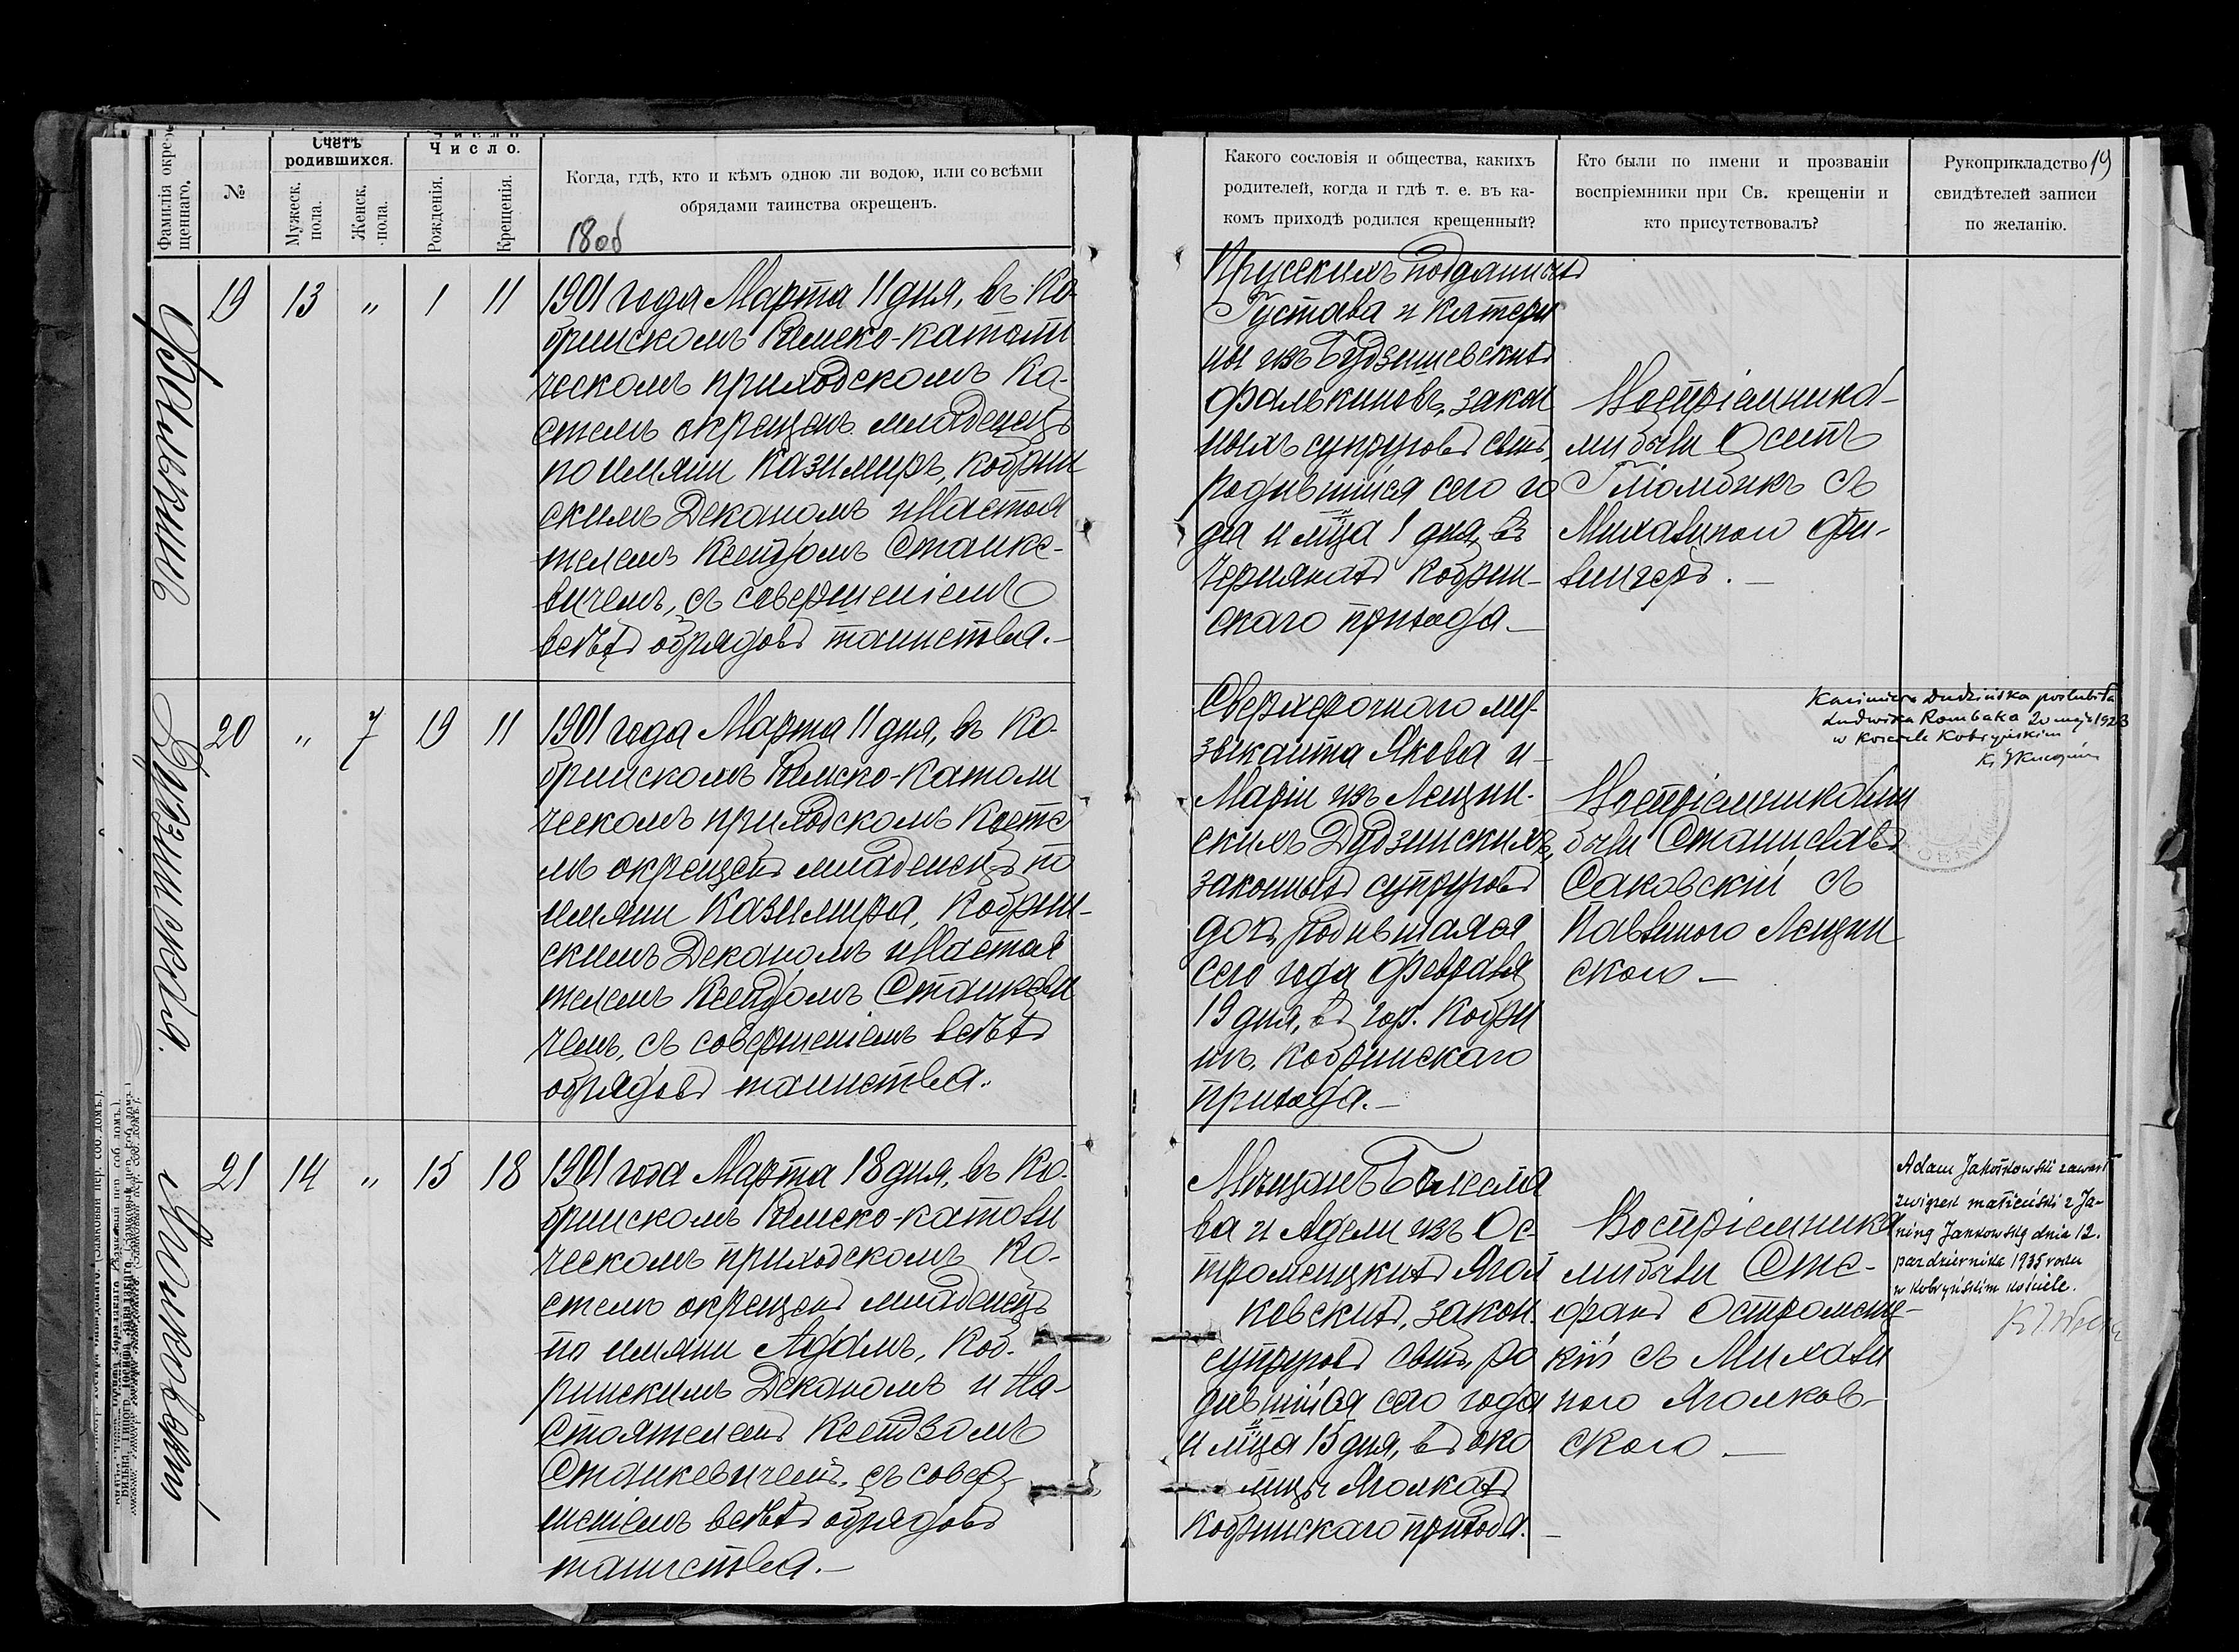 Фамилія окре-
щеннаго.
№
Счетъ
родившихся.
Мужеск.
пола.
Женск.
пола.
Число.
Рожденія.
Крещенія.
Когда, гдѣ, кто и кѣмъ одною ли водою, или со всѣми
обрядами таинства окрещенъ.
Фалькинъ
19
13
"
1
11
1901 года Марта 11 дня, въ Ко-
бринскомъ Римско-католи
ческомъ приходскомъ Ко-
стелѣ окрещенъ младенецъ
по имяни Казимиръ, Кобрин
скимъ Деканомъ и Настоя
телемъ Ксендзомъ Станке-
вичемъ, съ совершеніемъ
всѣхъ обрядовъ таинства.-
Дудзинская.
20
"
7
19
11
1901 года Марта 11 дня, въ Ко-
бринскомъ Римско-католи
ческомъ приходскомъ Косте
лѣ окрещенъ младенецъ по
имяни Казимира, Кобрин-
скимъ Деканомъ и Настоя
телемъ Ксендзомъ Станкеви
чемъ, съ совершеніемъ всѣхъ
обрядовъ таинства.
21
14
"
15
18
1901 года Марта 18 дня, въ Ко-
бринскомъ Римско-католи
ческомъ приходскомъ Ко-
стелѣ окрещенъ младенецъ
по имяни Адамъ, Коб-
ринскимъ Деканомъ и На-
стоятелемъ Ксендзомъ
Станкевичемъ, съ совер
шеніемъ всѣхъ обрядовъ
таинства.-
Какого сословія и общества, какихъ
родителей, когда и гдѣ т. е. въ ка-
комъ приходѣ родился крещенный?
Кто были по имени и прозваніи
воспріемники при Св. крещеніи и
кто присутствовалъ?
Рукоприкладство
свидѣтелей записи
по желанію.
19
Прусскихъ подданныхъ
Густава и Катери
ны изъ Будзишевскихъ
Фалькиновъ, закон
ныхъ супруговъ сынъ,
родившійся сего го
да и мѣца 1 дня, въ
Чернякахъ Кобрин-
скаго прихода.-
Воспріемника-
ми были Осипъ
съ
Михалиною Фи-
лингеръ.-
Сверхсрочнаго му-
зыканта Якова и
Маріи изъ Лещин-
скихъ Дудзинскихъ,
законныхъ супруговъ
дочь, родившаяся
сего года Февраля
19 дня, въ гор. Кобри
нѣ, Кобринскаго
прихода.-
Воспріемниками
были Станиславъ
Саковскій съ
Павлиною Лещин
скою-
Kazimiera Dudzińska poślubiła
Ludwika Rombaka 20 maja 1923
w Kościele Kobryńskim
Мѣщанъ
ва и Адели изъ Ос-
тромецкихъ Ягол
ковскихъ, закон.
супруговъ сынъ, ро
дившійся сего года
и мѣца 15 дня, въ око
лицы Ягелкахъ
Кобринскаго прихода.-
Воспріемника
ми были Сте-
фанъ Остромец-
кій съ Михали
ною Яголков-
скою-
Adam zawarł
związek małżeński z Ja-
niną Jankowską dnia 12.
października 1935 roku
w kobryńskim kościele.